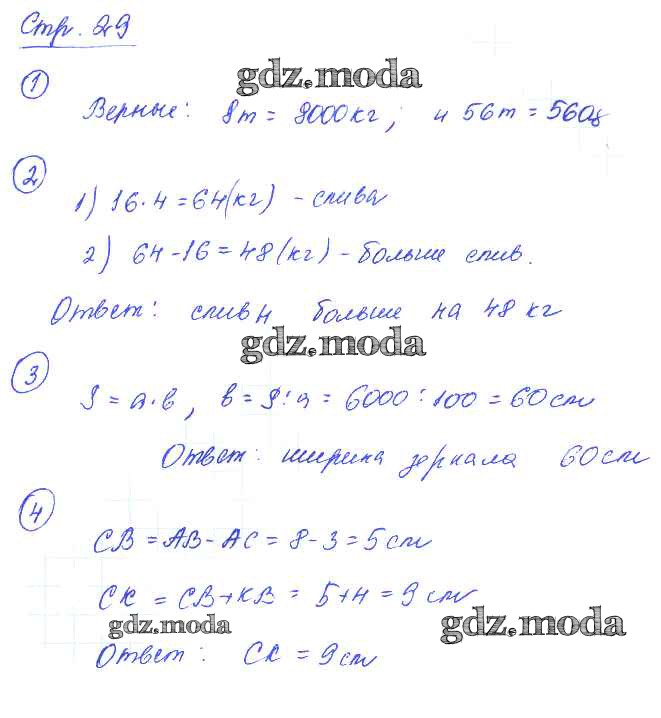 Стр. 29
gdz.moda
1
Верные: 8т = 8000кг; и 56т = 560ц
2
1) 16·4 = 64(кг) - слива
2) 64-16 = 48(кг) - больше слив.
Ответ: слив больше на 48 кг
gdz.moda
3
S = а·в, в = S:а = 6000:100 = 60см
Ответ: ширина зеркала 60см
4
СВ = АВ - АС = 8 - 3 = 5см
СК = СВ + КВ = 5+4 = 9см
gdz.moda
gdz.moda
Ответ: СК = 9см